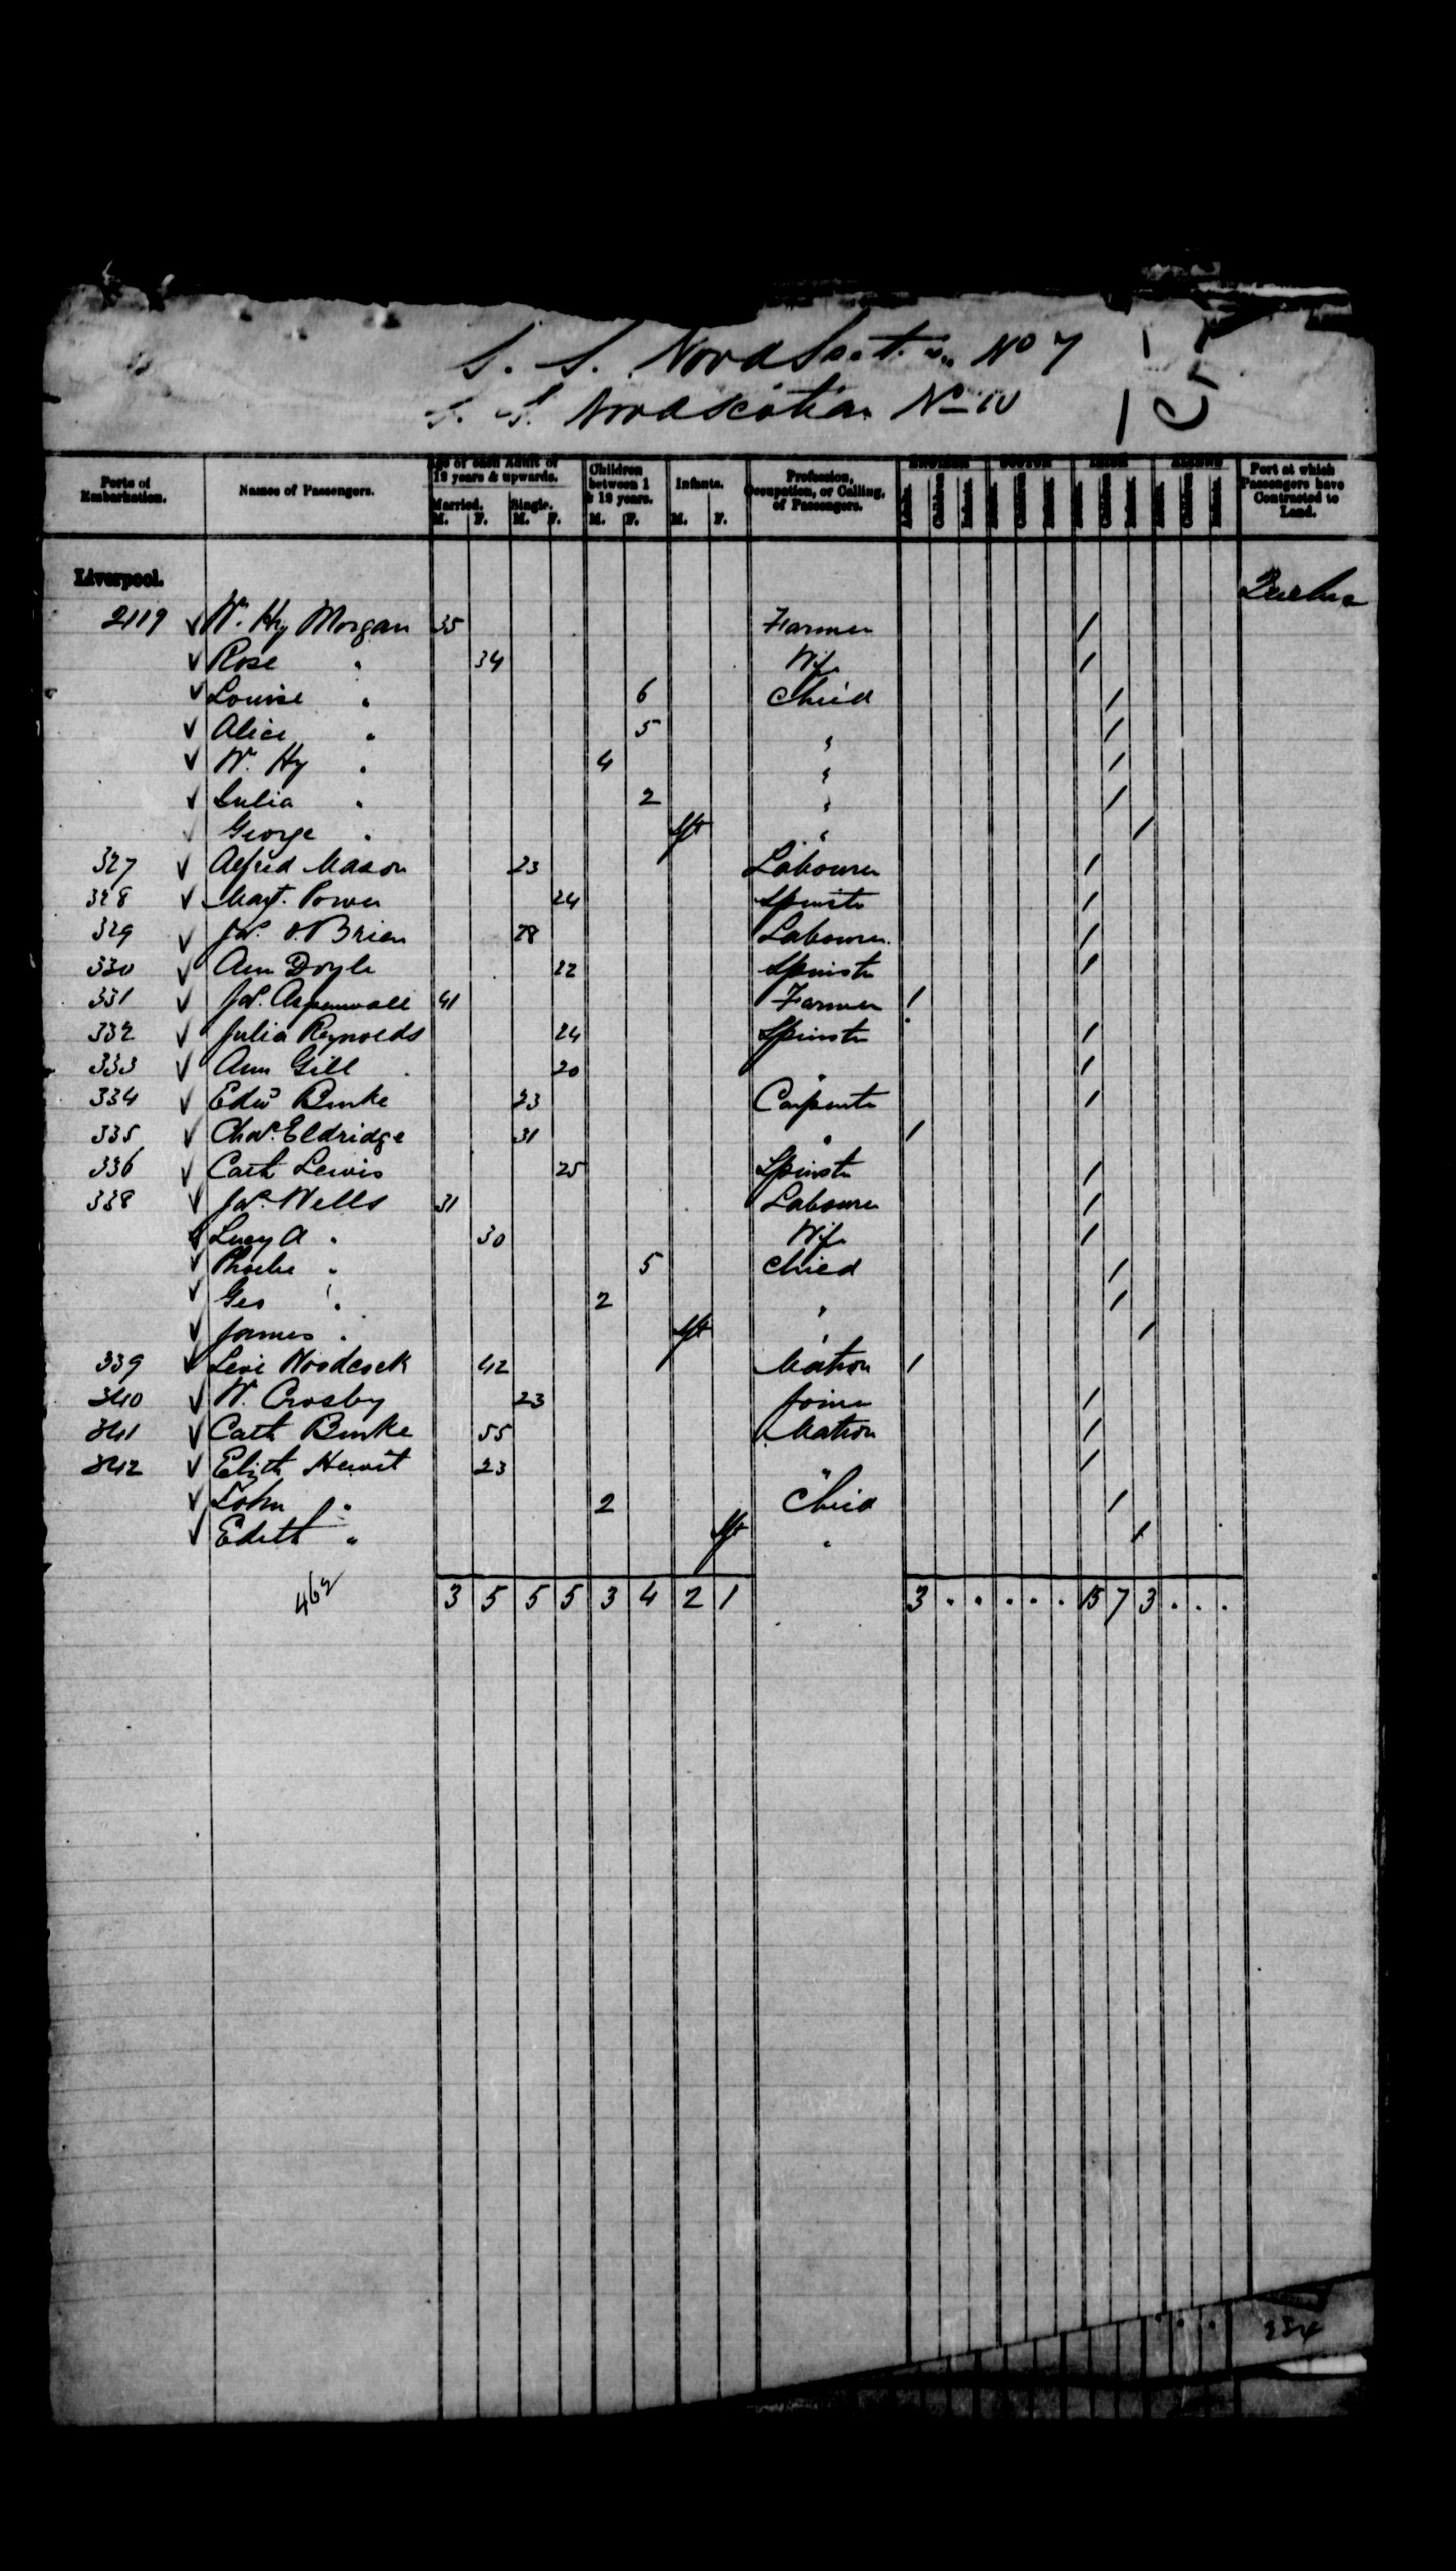 S. S. Nova Scotia No 7
S. S. Nova Scotian No 10
Ports of Embarkation. Names of Passengers. Age of each Adult of 12 years & upwards. Children between 1 & 12 years. Infants. Profession, Occupation, or Calling, of Passengers. ENGLISH SCOTCH IRISH ALIENS Port at which Passengers have Contracted to Land.
Married. Single.
M. F. M. F. M. F. M. F. Adults. Children Infants. Adults. Children Infants. Adults. Children Infants. Adults. Children Infants.
Liverpool. Quebec
2119 √ Wm. Hy Morgan 35 Farmer /
√ Rose " 34 Wife /
√ Louise " 6 Child /
√ Alice " 5 " /
√ Wm. Hy " 4 " /
√ Julia " 2 " /
√ George " Inft " /
327 √ Alfred Mason 23 Labourer /
328 √ Margt. Power 24 Spinster /
329 √ Jas. O'Brien 28 Labourer /
330 √ Ann Doyle 22 Spinster /
331 √ Jas. 41 Farmer /
332 √ Julia Reynolds 24 Spinster /
333 √ Ann Gill 20 " /
334 √ Edwd Burke 23 Carpenter /
335 √ Chas. Eldridge 31 " /
336 √ Cath Lewis 25 Spinster /
338 √ Jas. Wells 31 Labourer /
√ Lucy A " 30 Wife /
√ Phoebe " 5 Child /
√ Geo " 2 " /
√ James " Inft " /
339 √ Levi Woodcock 42 Matron /
340 √ W. Crosby 23 Joiner /
341 √ Cath Burke 55 Matron /
342 √ Elizth Hewit 23 " /
√ John " 2 Child /
√ Edith " Inft " /
462 3 5 5 5 3 4 2 1 3 . . . . . 15 7 3 . . .